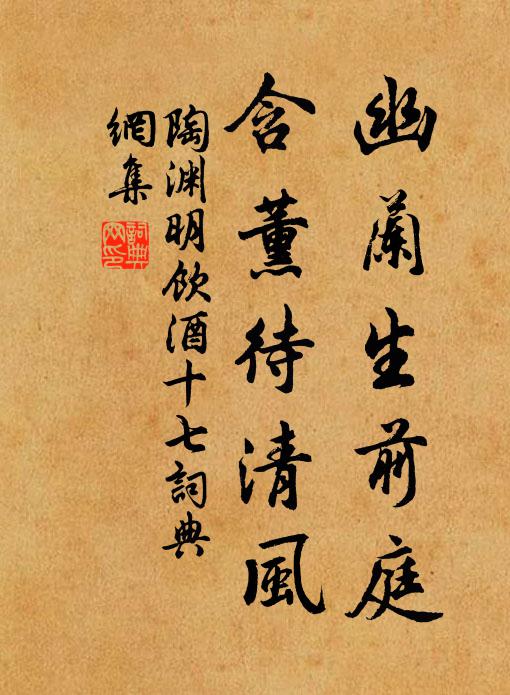 幽蘭生前庭
含薰待清風
陶淵明飲酒十七詞典
網集
詞典
网印